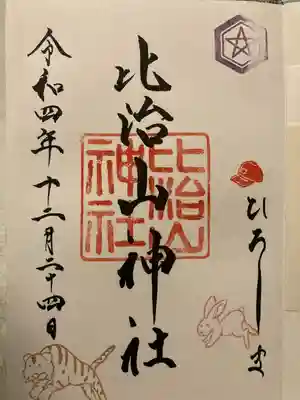 ひろしま
比治山神社
比治山
神社
令和四年十二月二十四日